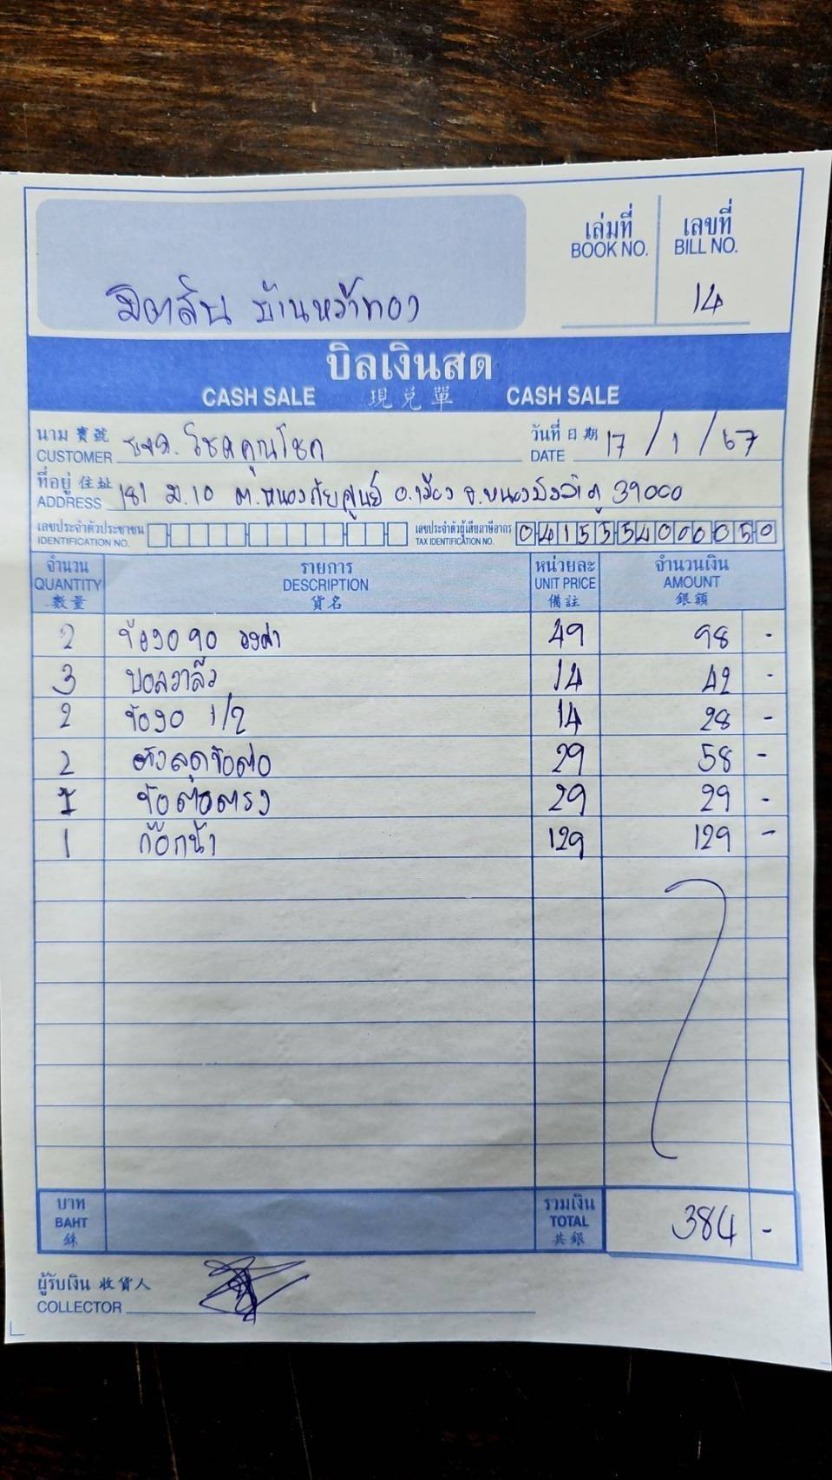 มิตสิน บ้านหว้าทอง
เล่มที่ เลขที่
BOOK NO. BILL NO.
14
บิลเงินสด
CASH SALE 現兌單 CASH SALE
นาม 寶號 วันที่ 日期 17/1/67
CUSTOMER หจก. โชคคูณโชค DATE
ที่อยู่ 住址
ADDRESS 181 ม.10 ต.หนองภัยศูนย์ อ.เมือง จ.หนองบัวลำภู 39000
เลขประจำตัวประชาชน เลขประจำตัวผู้เสียภาษีอากร 0415554000050
IDENTIFICATION NO. TAX IDENTIFICATION NO.
จำนวน รายการ หน่วยละ จำนวนเงิน
QUANTITY DESCRIPTION UNIT PRICE AMOUNT
數量 貨名 備註 銀額
2 ข้องอ 90 องศา 49 98 -
3 บอลวาล์ว 14 42 -
2 ข้องอ 1/2 14 28 -
2 ลดข้อต่อ 29 58 -
1 ข้อต่อตรง 29 29 -
1 ก๊อกน้ำ 129 129 -
บาท รวมเงิน
BAHT TOTAL 384 -
銖 共銀
ผู้รับเงิน 收貨人
COLLECTOR